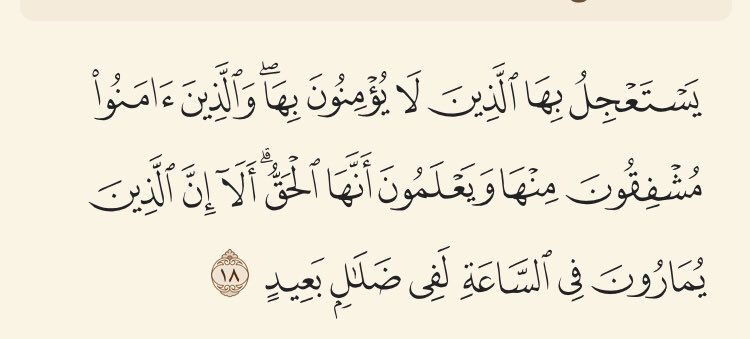 يَسْتَعْجِلُ بِهَا ٱلَّذِينَ لَا يُؤْمِنُونَ بِهَاۖ وَٱلَّذِينَ ءَامَنُوا۟
مُشْفِقُونَ مِنْهَا وَيَعْلَمُونَ أَنَّهَا ٱلْحَقُّۗ أَلَآ إِنَّ ٱلَّذِينَ
يُمَارُونَ فِى ٱلسَّاعَةِ لَفِى ضَلَـٰلٍۭ بَعِيدٍ ١٨